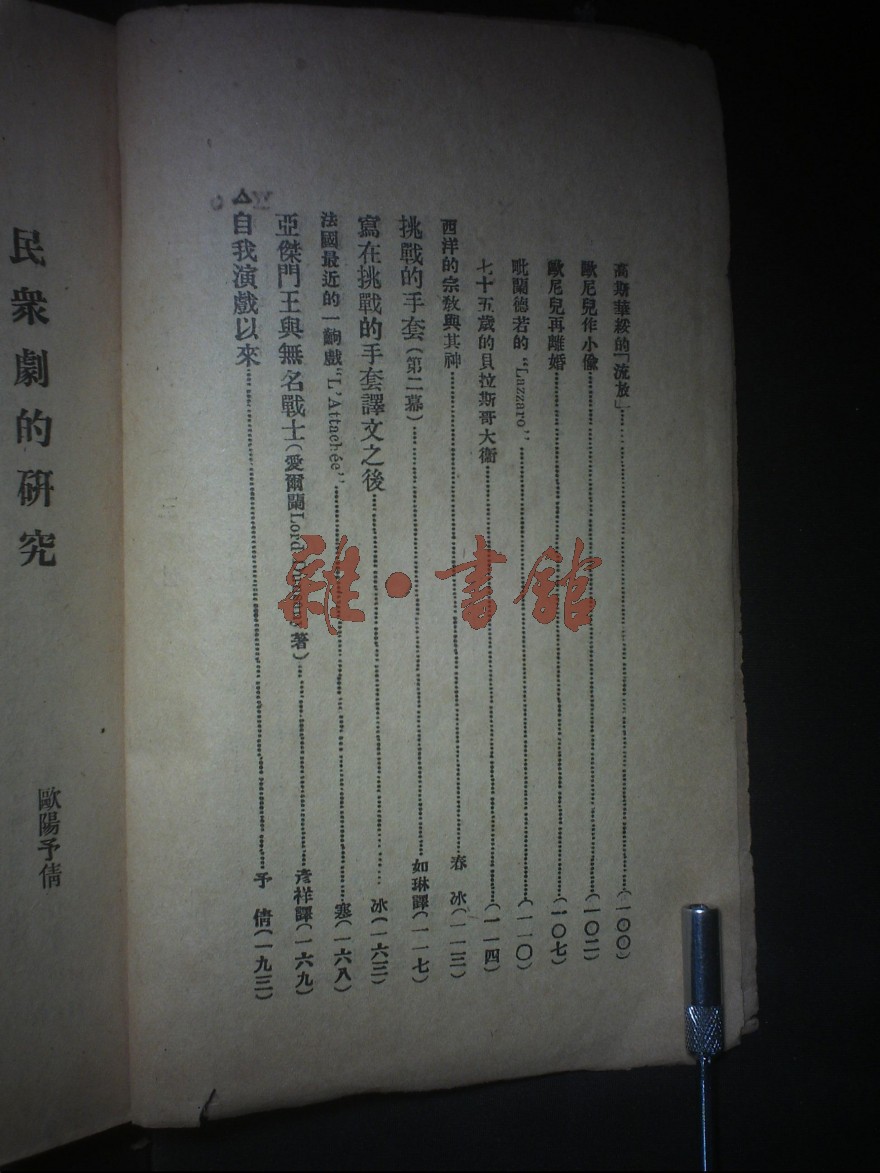 高斯華綏的「流放」(一〇〇)
歐尼兒作小倫(一〇二)
歐尼兒再離婚(一〇七)
毗蘭德若的“Lazzaro”(一一〇)
七十五歲的貝拉斯哥大衛(一一四)
西洋的宗教與其神 春冰(一一三)
挑戰的手套(第二幕) 如琳譯(一一七)
寫在挑戰的手套譯文之後 冰(一六三)
法國最近的一齣戲“L'Attachée” 塞(一六八)
亞傑門王與無名戰士(愛爾蘭Lord 著) 彥祥譯(一六九)
△自我演戲以來 予倩(一九三)
民衆劇的研究
歐陽予倩
雜·書館